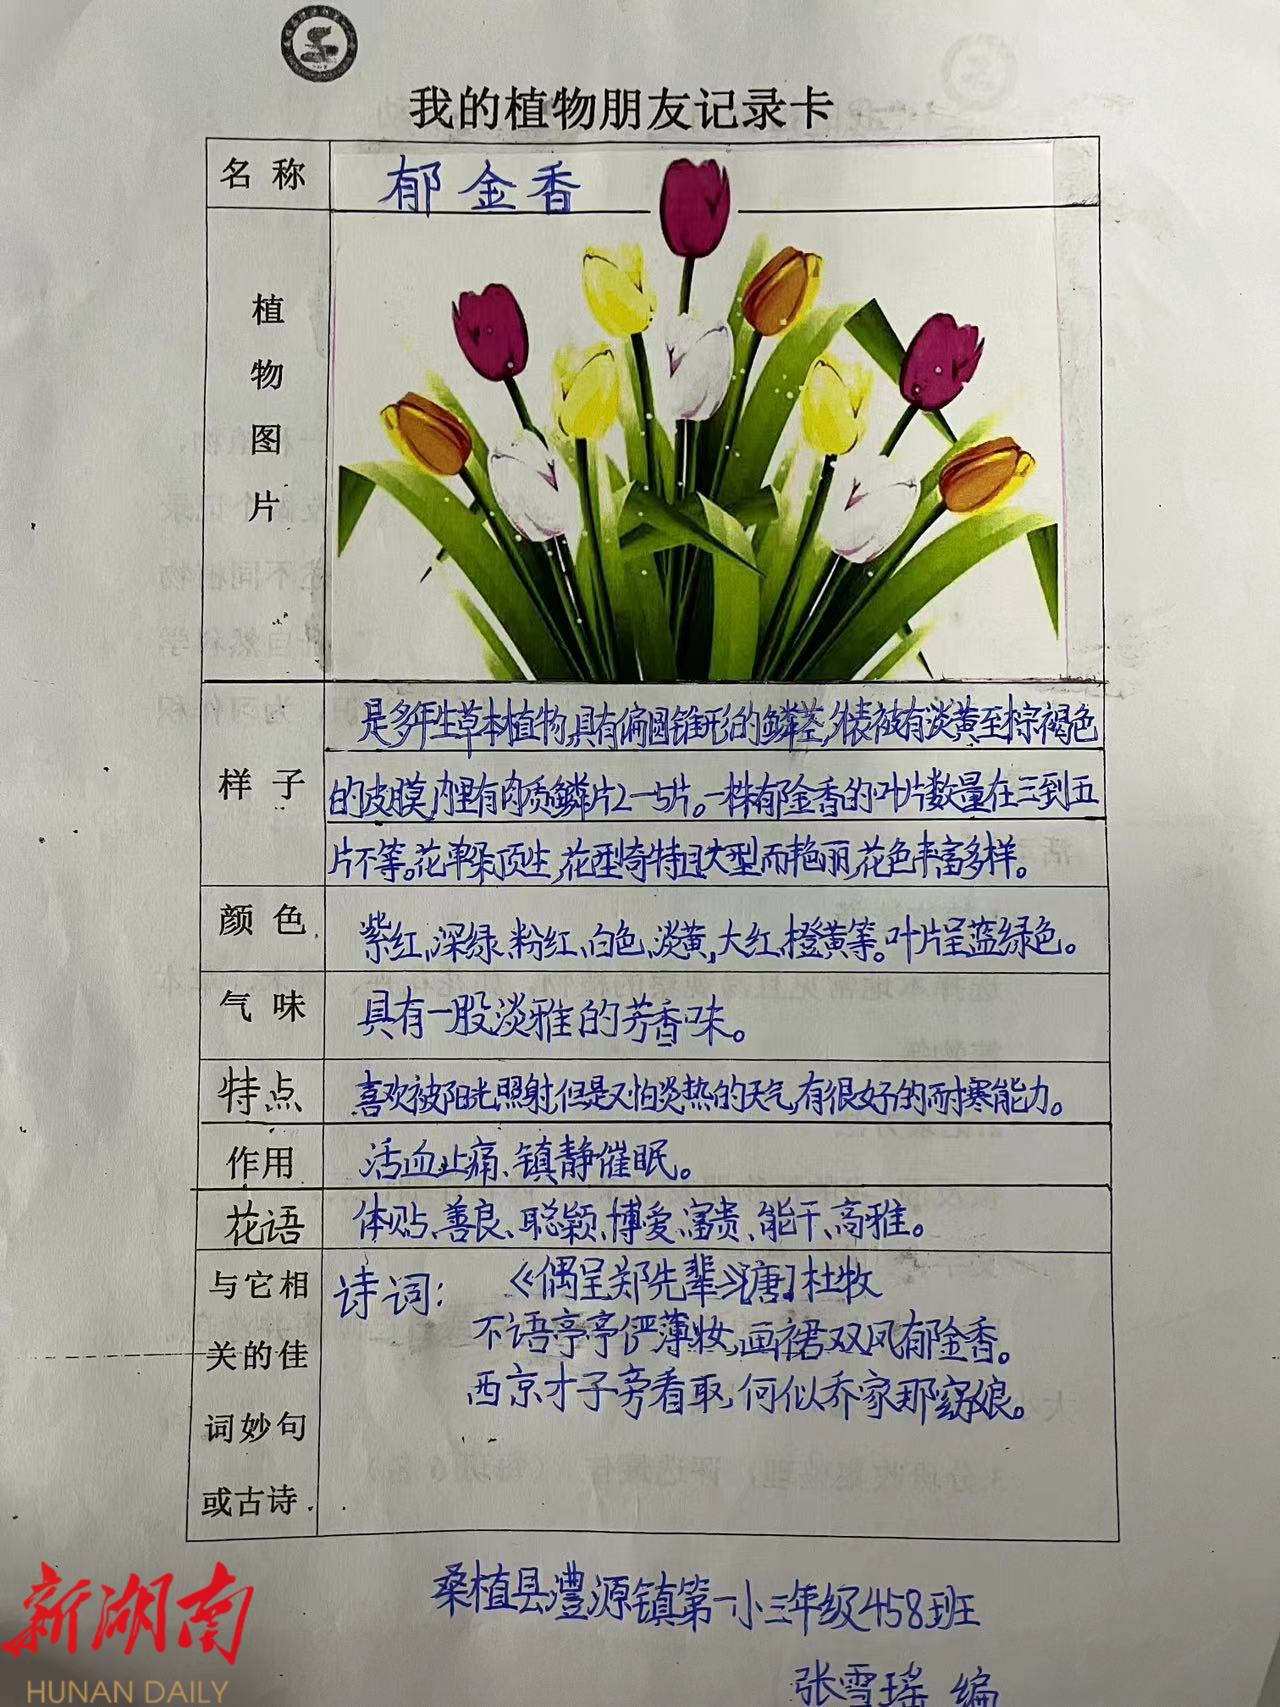 我的植物朋友记录卡
名 称
郁金香
植
物
图
片
样 子
是多年生草本植物,具有偏圆锥形的鳞茎,外表被有淡黄至棕褐色
的皮膜,内里有肉质鳞片2一5片。一株郁金香的叶片数量在三到五
片不等。花单朵顶生,花型奇特且大型而艳丽,花色丰富多样。
颜 色
紫红、深绿、粉红、白色、淡黄,大红、橙黄等。叶片呈蓝绿色。
气 味
具有一股淡雅的芳香味。
特点
喜欢被阳光照射,但是又怕炎热的天气,有很好的耐寒能力。
作用
活血止痛、镇静催眠。
花语
体贴、善良、聪颖、博爱、富贵、能干、高雅。
与它相
关的佳
词妙句
或古诗
诗词:
《偶呈郑先辈》[唐]杜牧
不语亭亭俨薄妆,画裙双凤郁金香。
西京才子旁看取,何似乔家那窈娘。
桑植县澧源镇第一小三年级458班
张雪瑶 编
新湖南
HUNAN DAILY